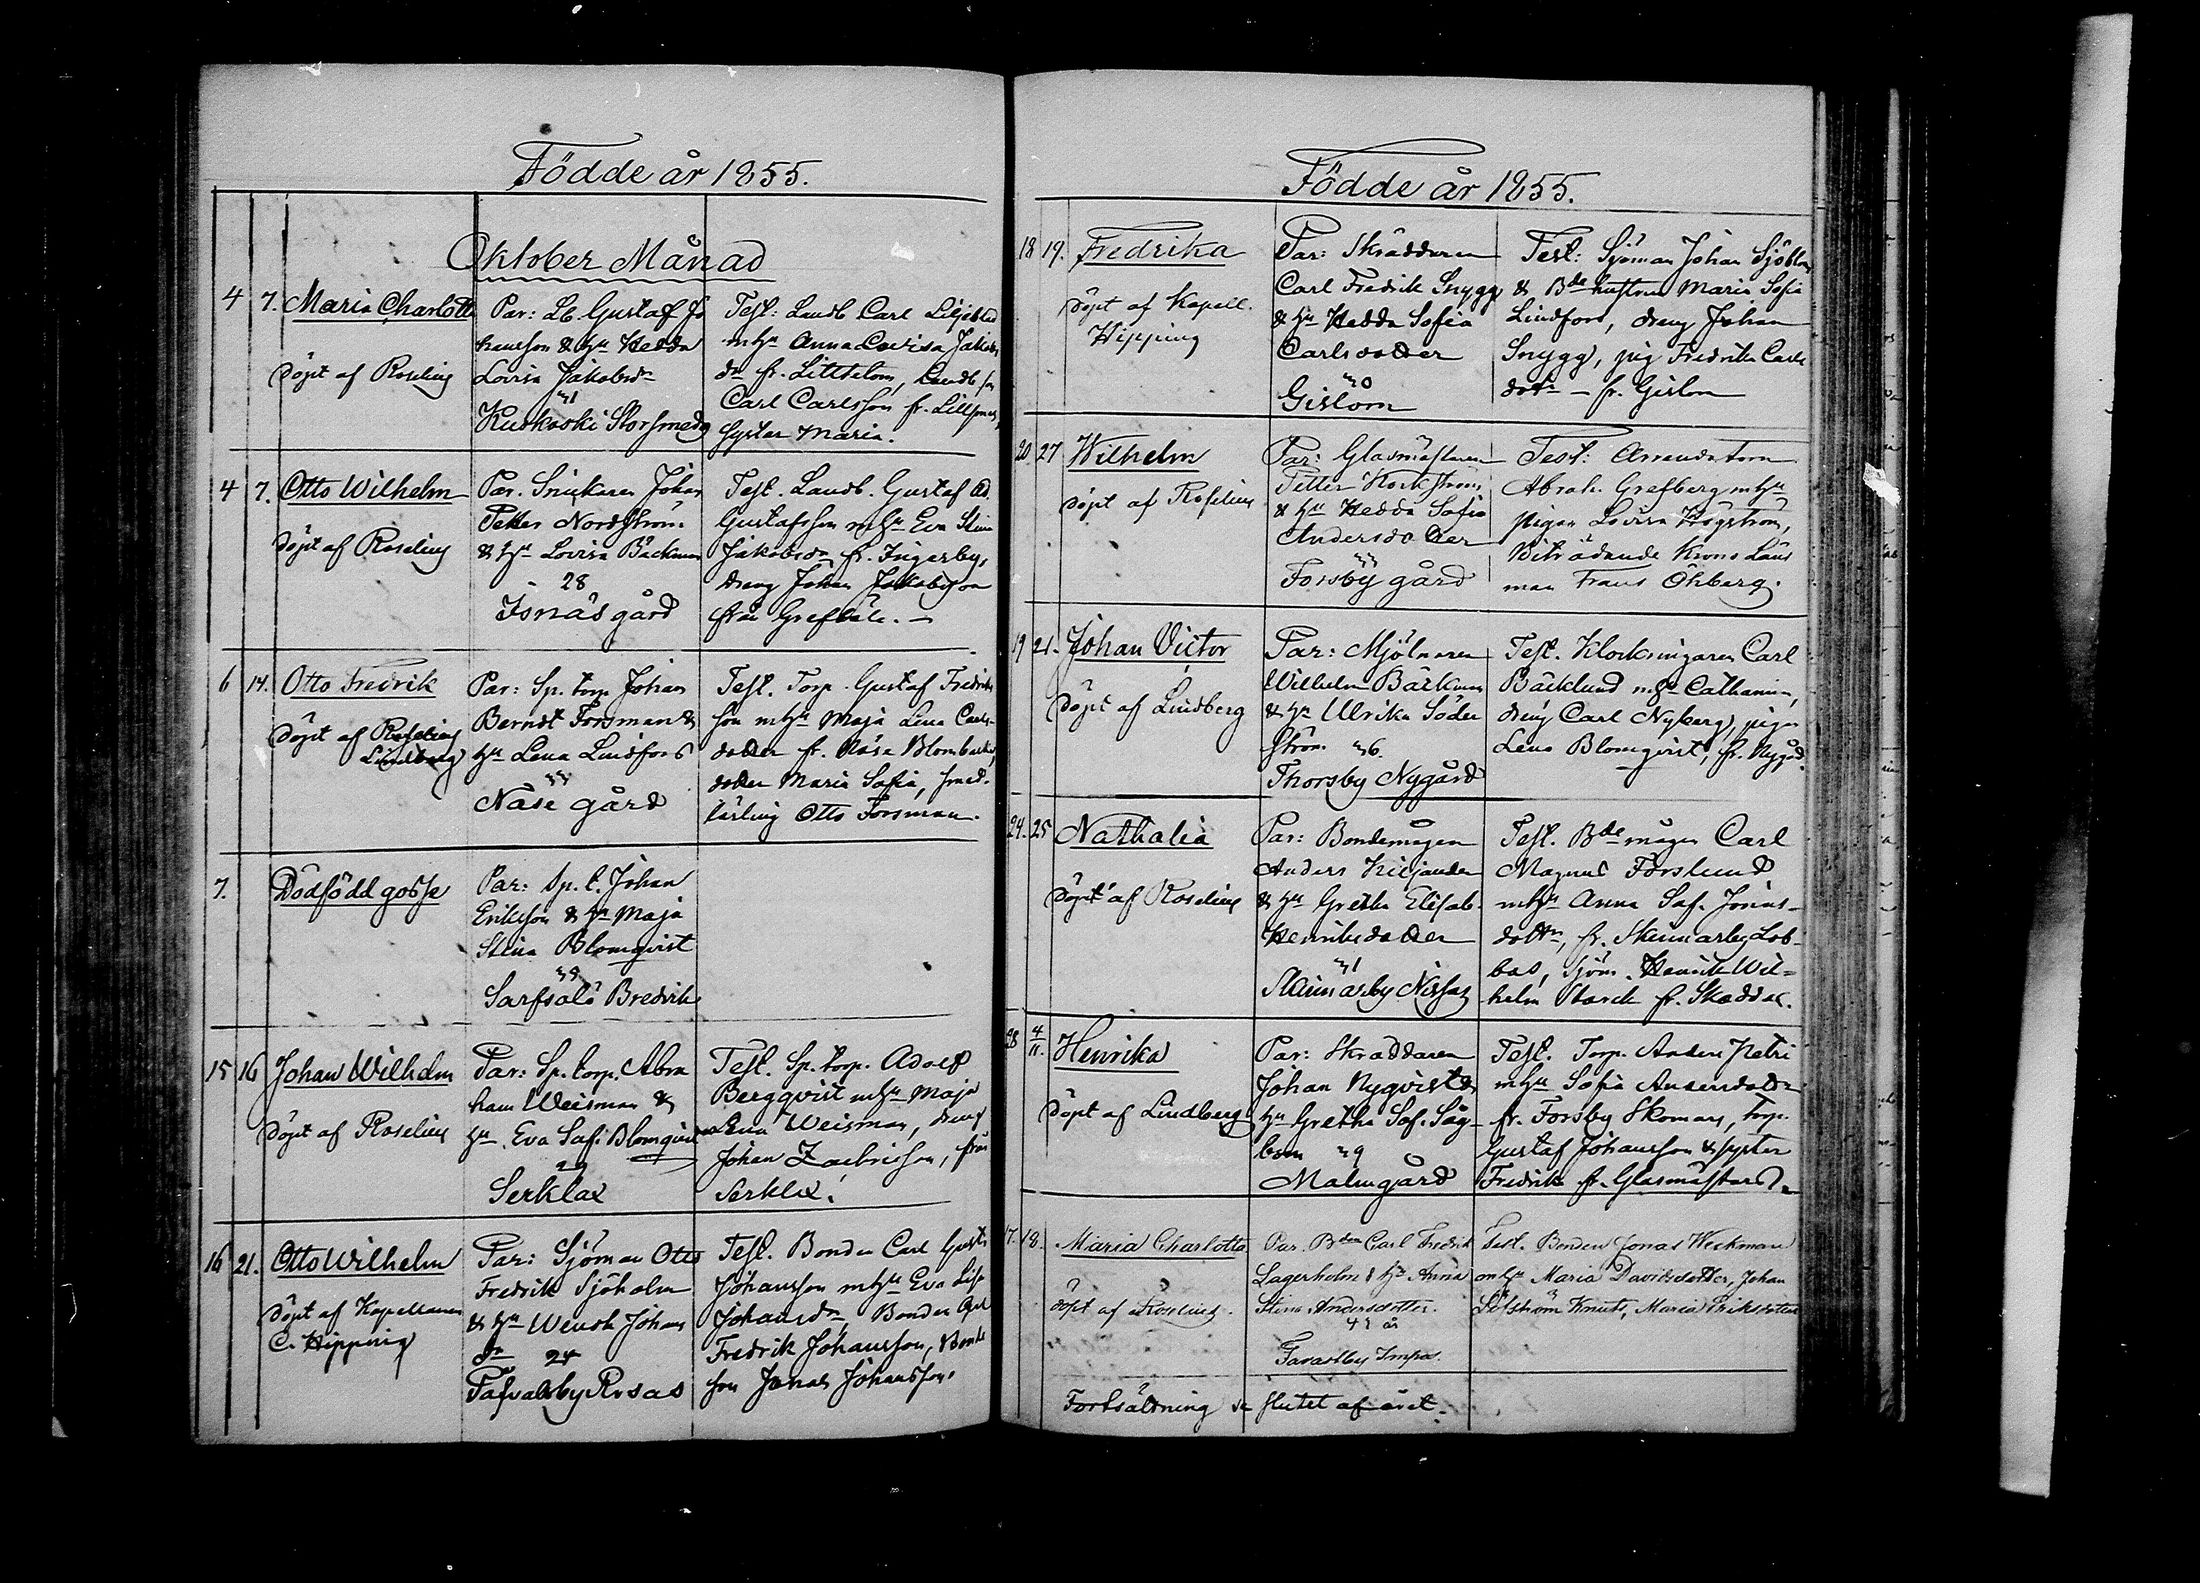 Födde år 1855.
Oktober Månad
4 7. Maria Charlotta
Döpt af Roselius
Par: Lb. Gustaf Jo
hansson & hu Hedda
Lovisa Jakobsdr
31
Kuskoski Storsmeds
Test: Landb Carl Liljeblad
mhu Anna Lovisa Jakobs
dr fr. Littelom, Landb.
Carl Carlsson fr. Lillsmeds,
Syster Maria.
4 7. Otto Wilhelm
Döpt af Roselius
Par. Snickaren Johan
Petter Nordström
& hu Lovisa Bäckman
28
Isnäs gård
Test. Landb. Gustaf Ad.
Gustafsson mhu Eva Stina
Jakobsdr fr. Ingerby,
dreng Johan Jakobsson
från Greftile. —
6 14. Otto Fredrik
Döpt af Roselius
Lindberg
Par: Sp. torp Johan
Berndt Forsman &
hu Lena Lindfors
33
Näse gård
Test. Torp. Gustaf Fredriks
son mhu Maja Lena Carls-
dotter fr. Näse Blombacka,
dotter Maria Sofia, smed-
lärling Otto Forsman.
7. Dödfödd gosse
Par: Sp. t. Johan
Eriksson & hu Maja
Stina Blomqvist
38
Sarfsalö Bredvik
15 16 Johan Wilhelm
Döpt af Roselius
Par: Sp. torp. Abra
ham Weisman &
hu Eva Sofi Blomqvist
29
Serklax
Test. Sp. torp. Adolf
Bergqvist mhu Maja
Lena Weisman, dreng
Johan Zachrisson, från
Serklax.
16 21. Otto Wilhelm
Döpt af Kapellanen
C. Hipping
Par: Sjöman Otto
Fredrik Sjöholm
& hu Wendla Johans
dr 24
Tafvalsby Rosas
Test. Bonden Carl Gust.
Johansson mhu Eva Lis.
Johansdr, Bonden
Fredrik Johansson, Bonde
son Jonas Johansson.
Födde år 1855.
18 19. Fredrika
Döpt af Kapell.
Hipping
Par: Skräddaren
Carl Fredrik Snygg
& hu Hedda Sofia
Carlsdotter
30
Gislom
Test: Sjöman Johan Sjöblom
& Bde hustrun Maria Sofia
Lindfors, dreng Johan
Snygg, pig Fredrika Carls
dotr — fr. Gislom
20 27 Wilhelm
Döpt af Roselius
Par: Glasmästaren
Petter Hockström
& hu Hedda Sofia
Andersdotter
33
Forsby gård
Test: Arrendatorn
Abrah. Grefberg mhu
pigan Lovisa Högström,
Biträdande Krono Läns
man Frans Öhberg.
19 21. Johan Victor
Döpt af Lindberg
Par: Mjölnaren
Wilhelm Bäckman
& hu Ulrika Söder
ström 36.
Thorsby Nygård
Test. Klockringaren Carl
Bäcklund mhu Catharina,
dreng Carl Nyberg, pigan
Lena Blomqvist, fr. Nygård.
24. 25 Nathalia
Döpt af Roselius
Par: Bondemågen
Anders Kiljander
& hu Gretha Elisab.
Henriksdotter
31
Skinnarby Nissas
Test. Bde mågen Carl
Magnus Forslund
mhu Anna Sof. Jonas-
dottr, fr. Skinnarby Lob-
bas, Sjöm. Henrik Wil-
helm Starck fr. Skeddas.
28 4/11. Henrika
Döpt af Lindberg
Par: Skräddaren
Johan Nyqvist &
hu Gretha Sof. Säg-
bom 39
Malmgård
Test. Torp. Anders Petri
mhu Sofia Andersdotr
fr. Forsby Skomars, Torp.
Gustaf Johansson & syster
Fredrika fr. Glasmästars.
17. 18. Maria Charlotta
döpt af Roselius.
Par. Bden Carl Fredrik
Lagerholm & hu Anna
Stina Andersdotter.
41 år
Tavastby Impas.
Test. Bonden Jonas Weckman
mhu Maria Davidsdotter, Johan
Löfström Knuts, Maria Eriksdotter
Fortsättning se slutet af året.